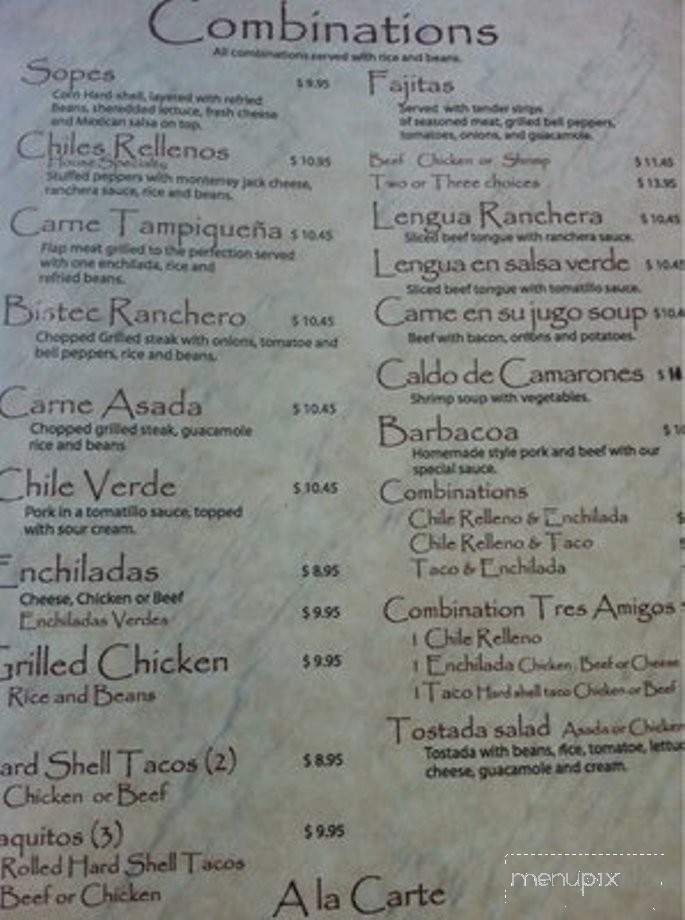 Combinations
All combinations served with rice and beans.
Sopes $ 9.95
Corn Hard shell, layered with refried
Beans, sheredded lettuce, fresh cheese
and Mexican salsa on top.
Chiles Rellenos $ 10.95
House Specialty
Stuffed peppers with monterrey jack cheese,
ranchera sauce, rice and beans.
Carne Tampiqueña $ 10.45
Flap meat grilled to the perfection served
with one enchilada, rice and
refried beans.
Bistec Ranchero $ 10.45
Chopped Grilled steak with onions, tomatoe and
bell peppers, rice and beans.
Carne Asada $ 10.45
Chopped grilled steak, guacamole
rice and beans
Chile Verde $ 10.45
Pork in a tomatillo sauce, topped
with sour cream.
Enchiladas $ 8.95
Cheese, Chicken or Beef
Enchiladas Verdes $ 9.95
Grilled Chicken $ 9.95
Rice and Beans
ard Shell Tacos (2) $ 8.95
Chicken or Beef
aquitos (3) $ 9.95
Rolled Hard Shell Tacos
Beef or Chicken
Fajitas
Served with tender strips
of seasoned meat, grilled bell peppers,
tomatoes, onions, and guacamole.
Beef Chicken or Shrimp $ 11.45
Two or Three choices $ 13.95
Lengua Ranchera $ 10.45
Sliced beef tongue with ranchera sauce.
Lengua en salsa verde $ 10.45
Sliced beef tongue with tomatillo sauce.
Carne en su jugo soup $10.4
Beef with bacon, onions and potatoes.
Caldo de Camarones $
Shrimp soup with vegetables.
Barbacoa $ 10
Homemade style pork and beef with our
special sauce.
Combinations
Chile Relleno & Enchilada $
Chile Relleno & Taco
Taco & Enchilada
Combination Tres Amigos
1 Chile Relleno
1 Enchilada Chicken, Beef or Cheese
1 Taco Hard shell taco Chicken or Beef
Tostada salad Asada or Chicken
Tostada with beans, rice, tomatoe, lettuc
cheese, guacamole and cream.
A la Carte
menupix